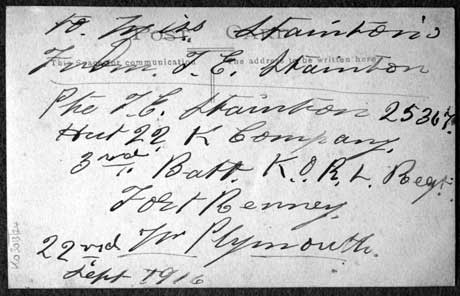 To Miss Stainton's
POST CARD
This Space for communication The address to be written here
From. T. E. Stainton
Pte T. E. Stainton 25367.
Hut 22 K Company.
3rd. Batt K.O.R.L. Regt.
Fort Renney.
22nd Nr Plymouth.
Sept 1916